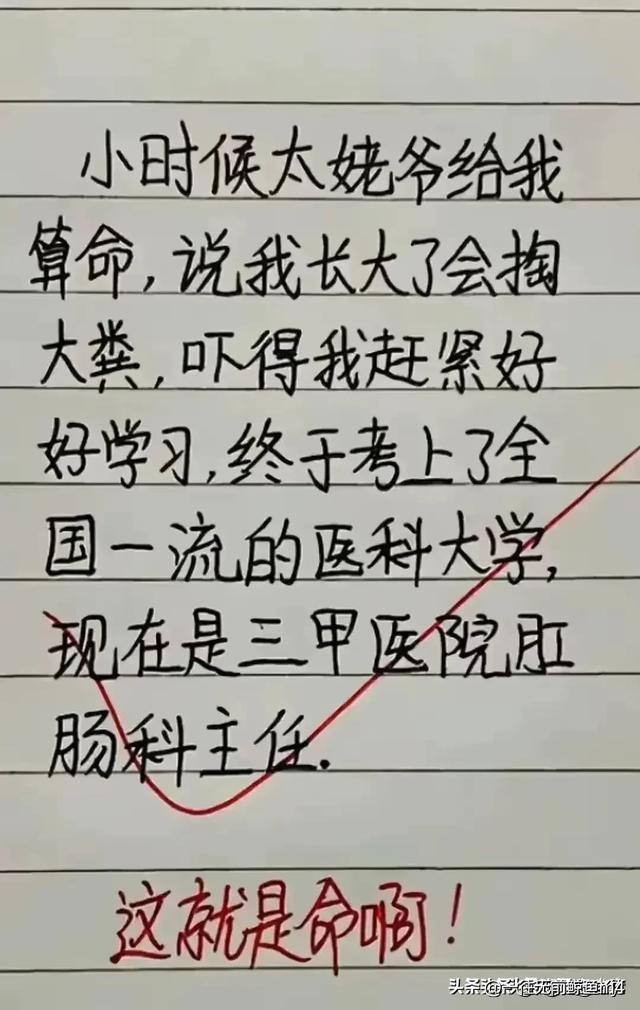 小时候太姥爷给我
算命,说我长大了会掏
大粪,吓得我赶紧好
好学习,终于考上了全
国一流的医科大学,
现在是三甲医院肛
肠科主任.
这就是命啊!